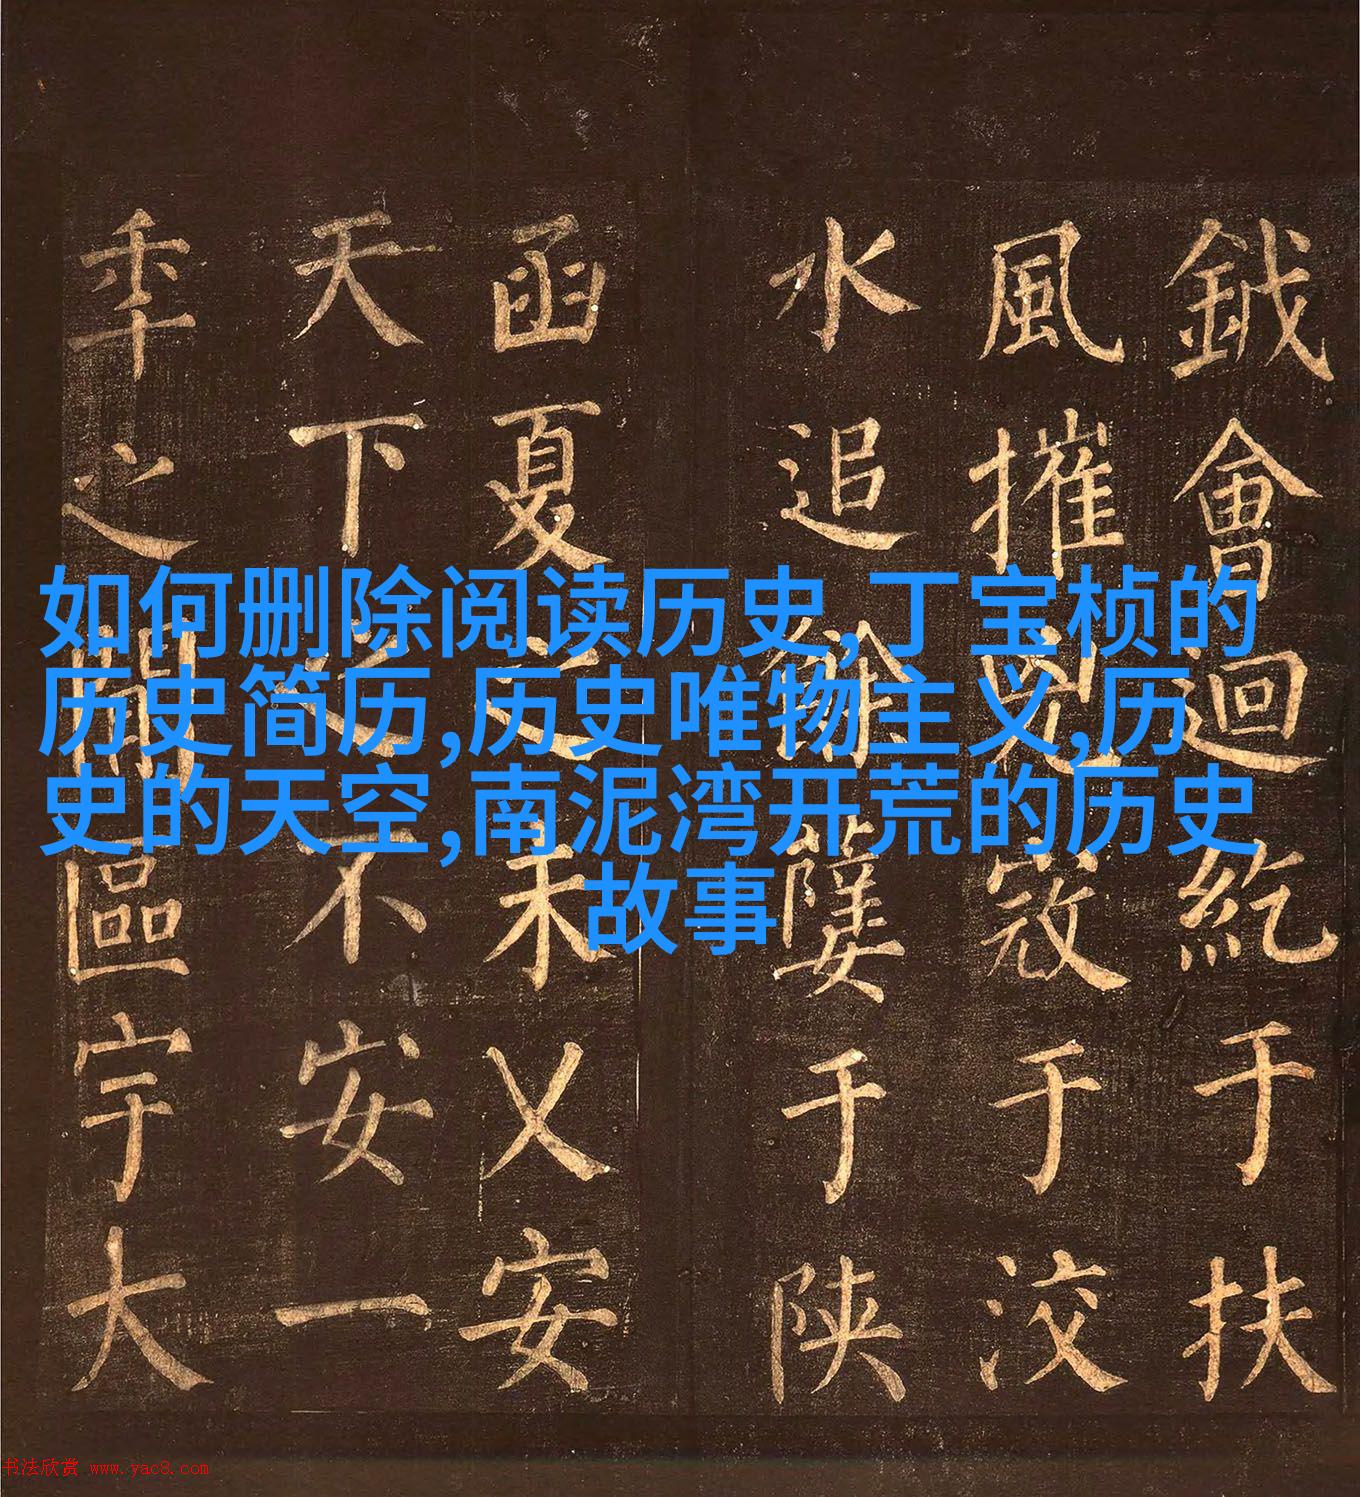 鉞會迴紇于扶
風摧兇寇于洨
水追餘孽于陝
函夏之未乂安
天下之不安一
秊之間區宇大
如何删除阅读历史,丁宝桢的
历史简历,历史唯物主义,历
史的天空,南泥湾开荒的历史
故事
书法欣赏 www.yac8.com